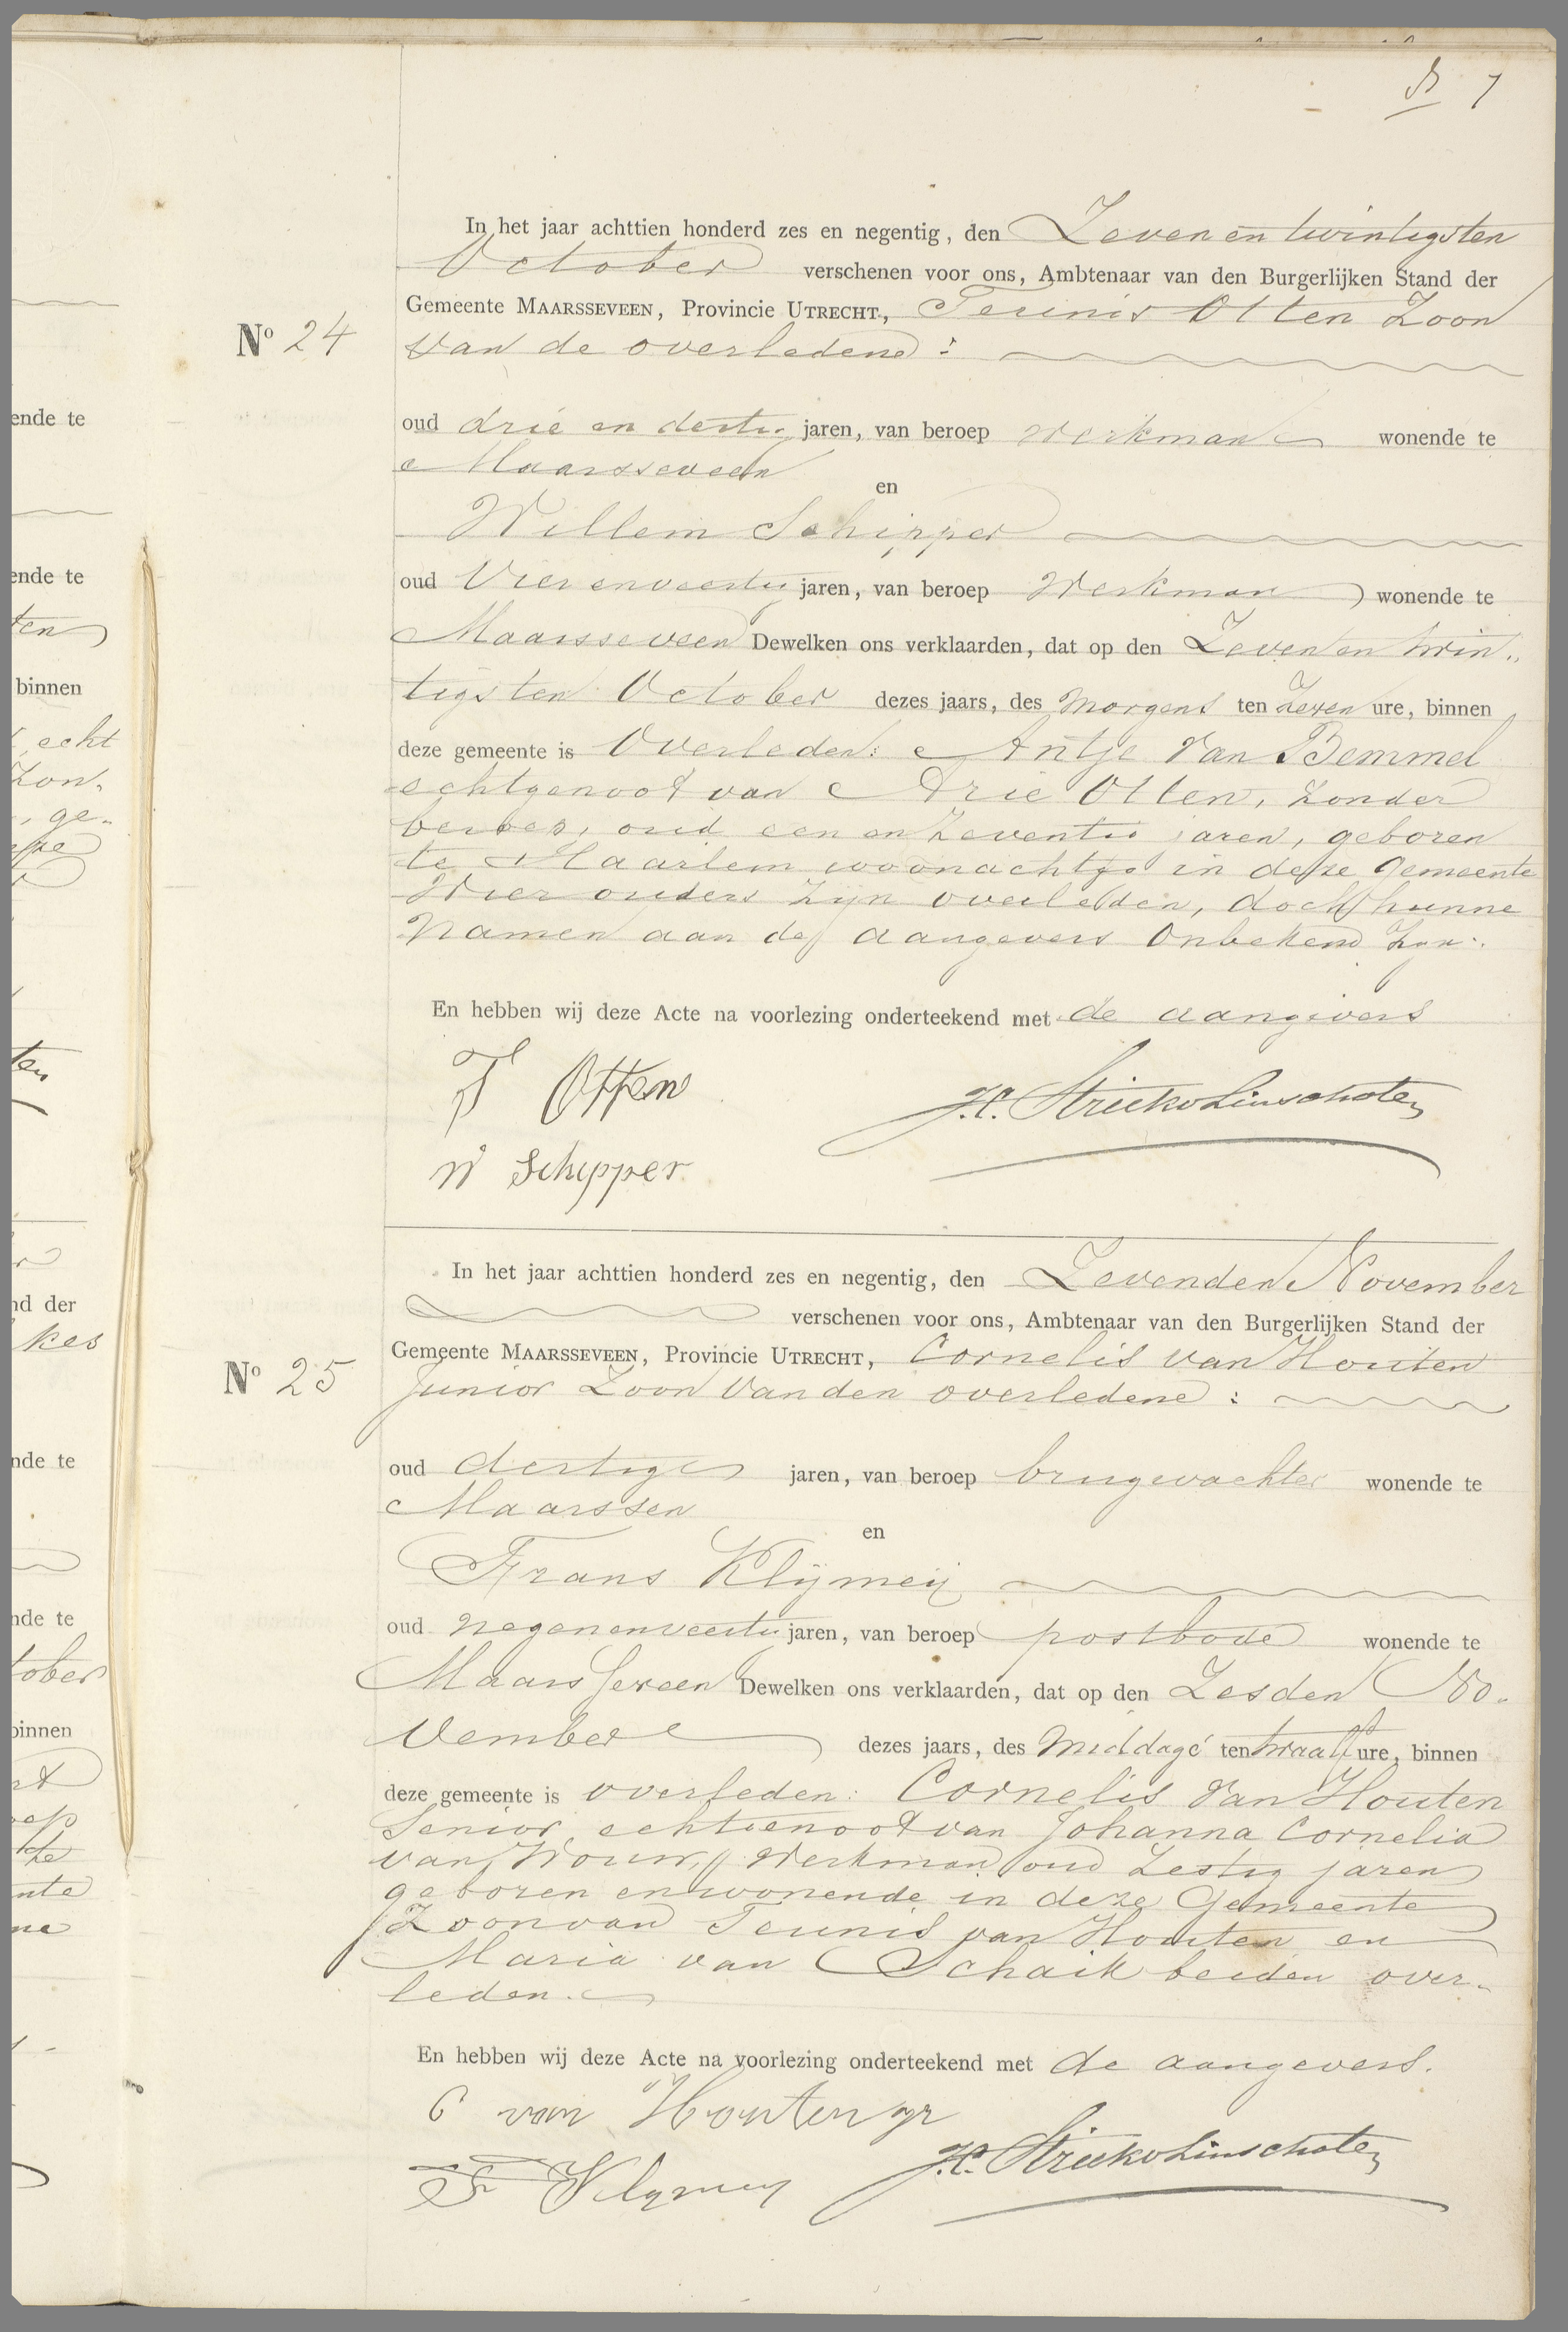 7
In het jaar achttien honderd zes en negentig, den Zeven en twintigsten
October verschenen voor ons, Ambtenaar van den Burgerlijken Stand der
Gemeente MAARSSEVEEN, Provincie UTRECHT, Teunis Otten Zoon
No 24 van de overledene :
oud drie en dertig jaren, van beroep werkman wonende te
Maarsseveen
en
Willem Schipper
oud Vier en veertig jaren, van beroep Werkman wonende te
Maarsseveen Dewelken ons verklaarden, dat op den Zeven en twin„
tigsten October dezes jaars, des Morgens ten Zeven ure, binnen
deze gemeente is Overleden: Antje van Bemmel
echtgenoot van Arie Otten, Zonder
beroep, oud een en Zeventig jaren, geboren
te Haarlem woonachtig in deze Gemeente
Wier ouders Zijn overleden, doch hunne
Namen aan de aangevers Onbekend Zijn.
En hebben wij deze Acte na voorlezing onderteekend met de aangevers
T Otten
H. Strick v Linschoten
W Schipper
In het jaar achttien honderd zes en negentig, den Zevenden November
verschenen voor ons, Ambtenaar van den Burgerlijken Stand der
Gemeente MAARSSEVEEN, Provincie UTRECHT, Cornelis van Houten
No 25 Junior Zoon van den overledene :
oud dertig jaren, van beroep brugwachter wonende te
Maarssen
en
Frans Klijmeij
oud negen en veertig jaren, van beroep postbode wonende te
Maarsseveen Dewelken ons verklaarden, dat op den Zesden No„
vember dezes jaars, des Middags ten twaalf ure, binnen
deze gemeente is overleden: Cornelis van Houten
Senior, echtgenoot van Johanna Cornelia
van Wouw, Werkman oud Zestig jaren
geboren en wonende in deze Gemeente
Zoon van Teunis van Houten en
Maria van Schaik beiden over„
leden.
En hebben wij deze Acte na voorlezing onderteekend met de aangevers.
C van Houten jr
H. Strick v Linschoten
F Klijmeij